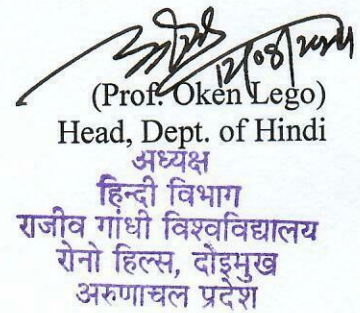 (Prof. Oken Lego)
Head, Dept. of Hindi
अध्यक्ष
हिन्दी विभाग
राजीव गांधी विश्वविद्यालय
रोनो हिल्स, दोइमुख
अरुणाचल प्रदेश